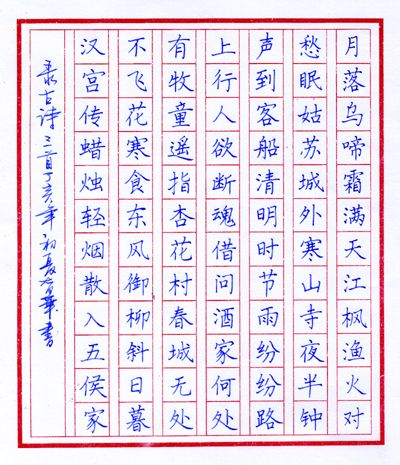 月落乌啼霜满天江枫渔火对
愁眠姑苏城外寒山寺夜半钟
声到客船清明时节雨纷纷路
上行人欲断魂借问酒家何处
有牧童遥指杏花村春城无处
不飞花寒食东风御柳斜日暮
汉宫传蜡烛轻烟散入五侯家
录古诗三首丁亥年初夏華书